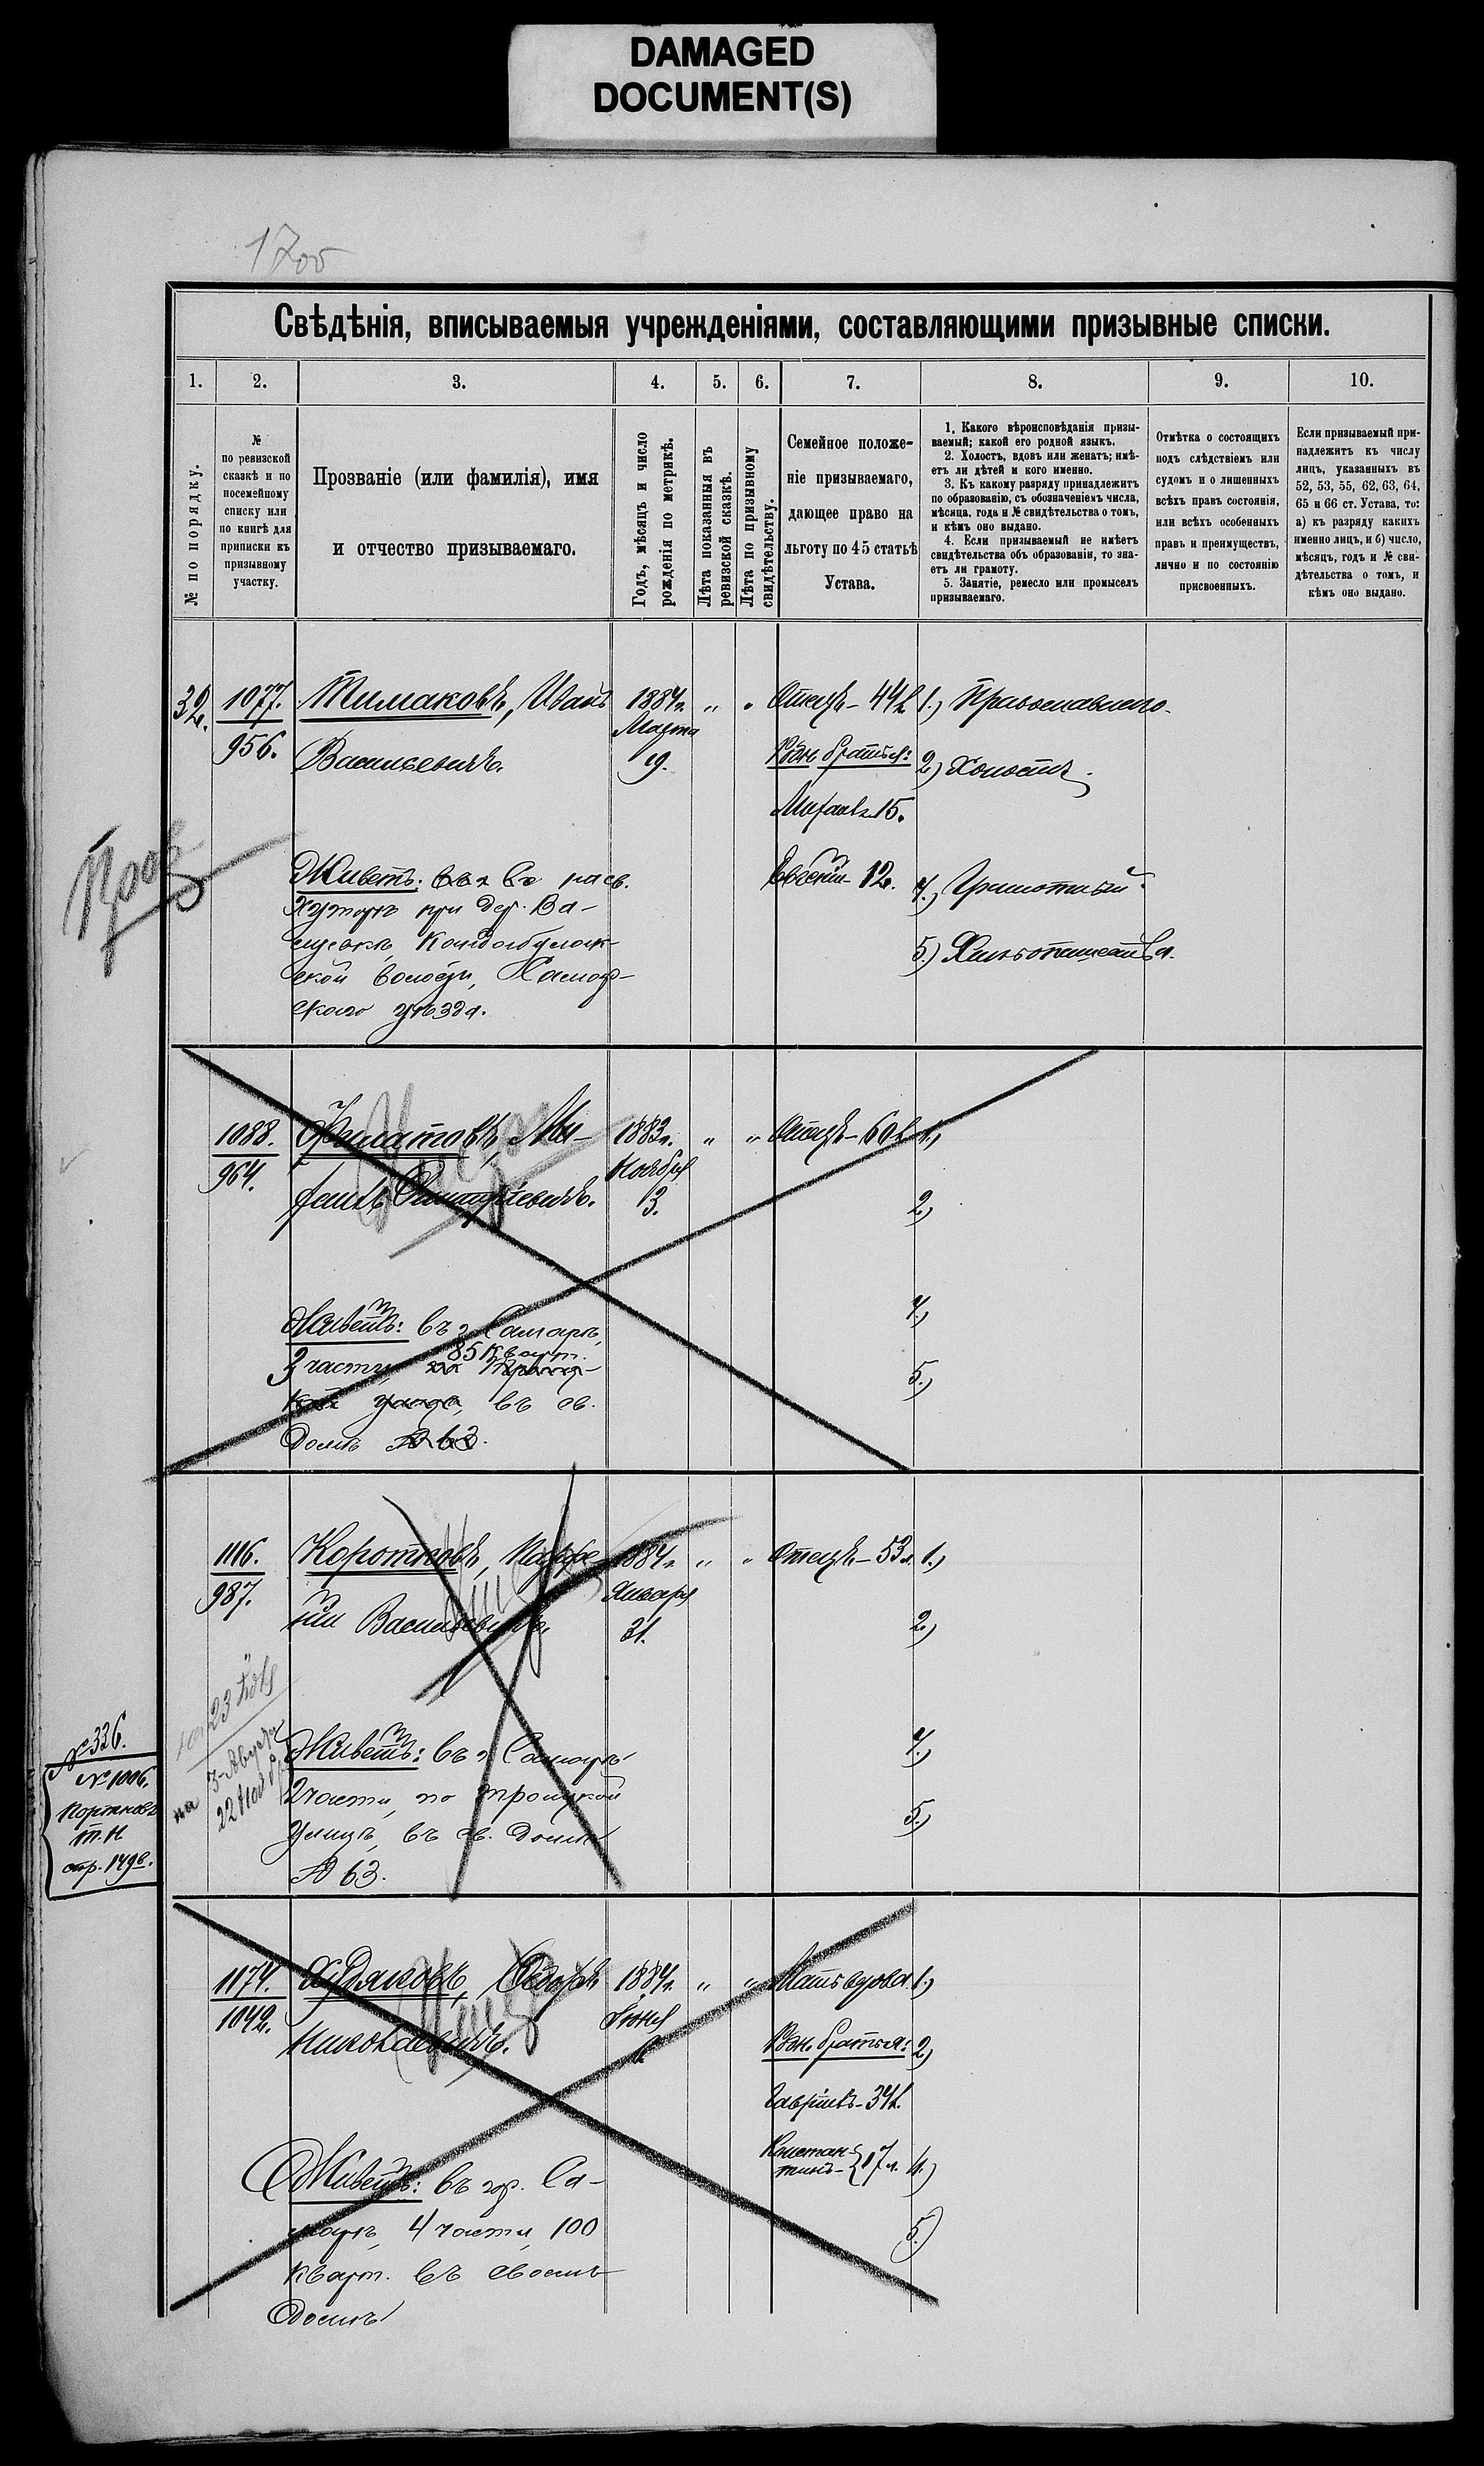 DAMAGED
DOCUMENT(S)
17об
Свѣдѣнія, вписываемыя учрежденіями, составляющими призывные списки.
1. 2. 3. 4. 5. 6. 7. 8. 9. 10.
№ по порядку.
№
по ревизской
сказкѣ и по
посемейному
списку или
по книгѣ для
приписки къ
призывному
участку.
Прозваніе (или фамилія), имя
и отчество призываемаго.
Годъ, мѣсяцъ и число
рожденія по метрикѣ.
Лѣта показанныя въ
ревизской сказкѣ.
Лѣта по призывному
свидѣтельству.
Семейное положе-
ніе призываемаго,
дающее право на
льготу по 45 статьѣ
Устава.
1. Какого вѣроисповѣданія призы-
ваемый; какой его родной языкъ.
2. Холостъ, вдовъ или женатъ; имѣ-
етъ ли дѣтей и кого именно.
3. Къ какому разряду принадлежитъ
по образованію, съ обозначеніемъ числа,
мѣсяца, года и № свидѣтельства о томъ,
и кѣмъ оно выдано.
4. Если призываемый не имѣетъ
свидѣтельства объ образованіи, то зна-
етъ ли грамоту.
5. Занятіе, ремесло или промыселъ
призываемаго.
Отмѣтка о состоящихъ
подъ слѣдствіемъ или
судомъ и о лишенныхъ
всѣхъ правъ состоянія,
или всѣхъ особенныхъ
правъ и преимуществъ,
лично и по состоянію
присвоенныхъ.
Если призываемый при-
надлежитъ къ числу
лицъ, указанныхъ въ
52, 53, 55, 62, 63, 64,
65 и 66 ст. Устава, то:
а) къ разряду какихъ
именно лицъ, и б) число,
мѣсяцъ, годъ и № сви-
дѣтельства о томъ, и
кѣмъ оно выдано.
32. 1077. Тимаковъ, Иванъ 1884г. " " Отецъ - 44л. 1.) Православнаго.
956. Васильевичъ. Марта 19. Родн. братья: 2.) Холостъ.
Михаилъ 15.
Евгеній 12. 4.) Грамотный.
5.) Хлѣбопашества.
Живетъ:
Хуторѣ при дер. Ва-
ской волости, Самар-
скаго уѣзда.
1088. Филатовъ, Ми- 1883г. " " Отецъ - 60л. 1.)
964. хаилъ Ноября 3. 2.)
4.)
5.)
Живетъ: въ г. Самарѣ,
3 части, 85 кварт.
улицѣ, въ св.
домѣ № 63.
1116. Коротковъ, Парфе- 1884г. " " Отецъ - 53л. 1.)
987. ній Васильевичъ. Января 31. 2.)
4.)
5.)
Живетъ: въ г. Самарѣ
2 части, по Троицкой
улицѣ, въ св. домѣ
№ 63.
№ 326.
№ 1006.
стр. 149
1174. Худяковъ, Ѳедоръ 1884г. " " Мать вдова 1.)
1042. Николаевичъ. Іюня Родн. братья: 2.)
Гавріилъ - 34л.
Констан-
тинъ - 17л. 4.)
5.)
Живетъ: въ гор. Са-
марѣ, 4 части, 100
кварт. въ своемъ
домѣ